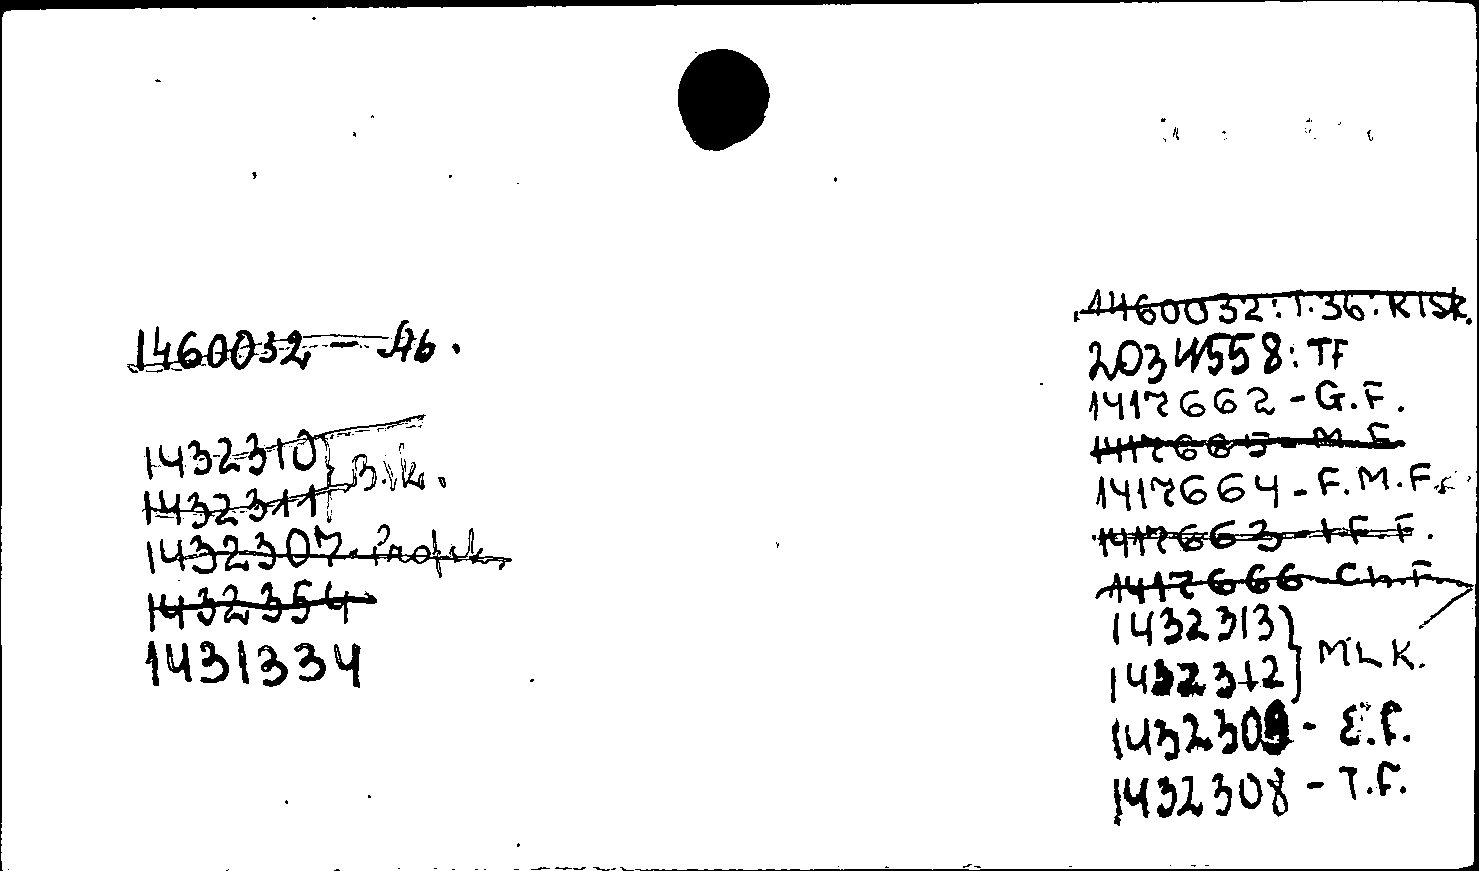 1460032 - Ab.
1432310 } B.lk.
1432311
1432307 - Profsk.
1432354
1431334
1460032: T.36: RISK.
2034558: TF
1417662 - G.F.
1417665 - M.F.
1417664 - F.M.F.
1417663 - I.F.F.
1417666 Ch.F.
1432313 } M.L.K.
1432312
1432309 - E.F.
1432308 - T.F.